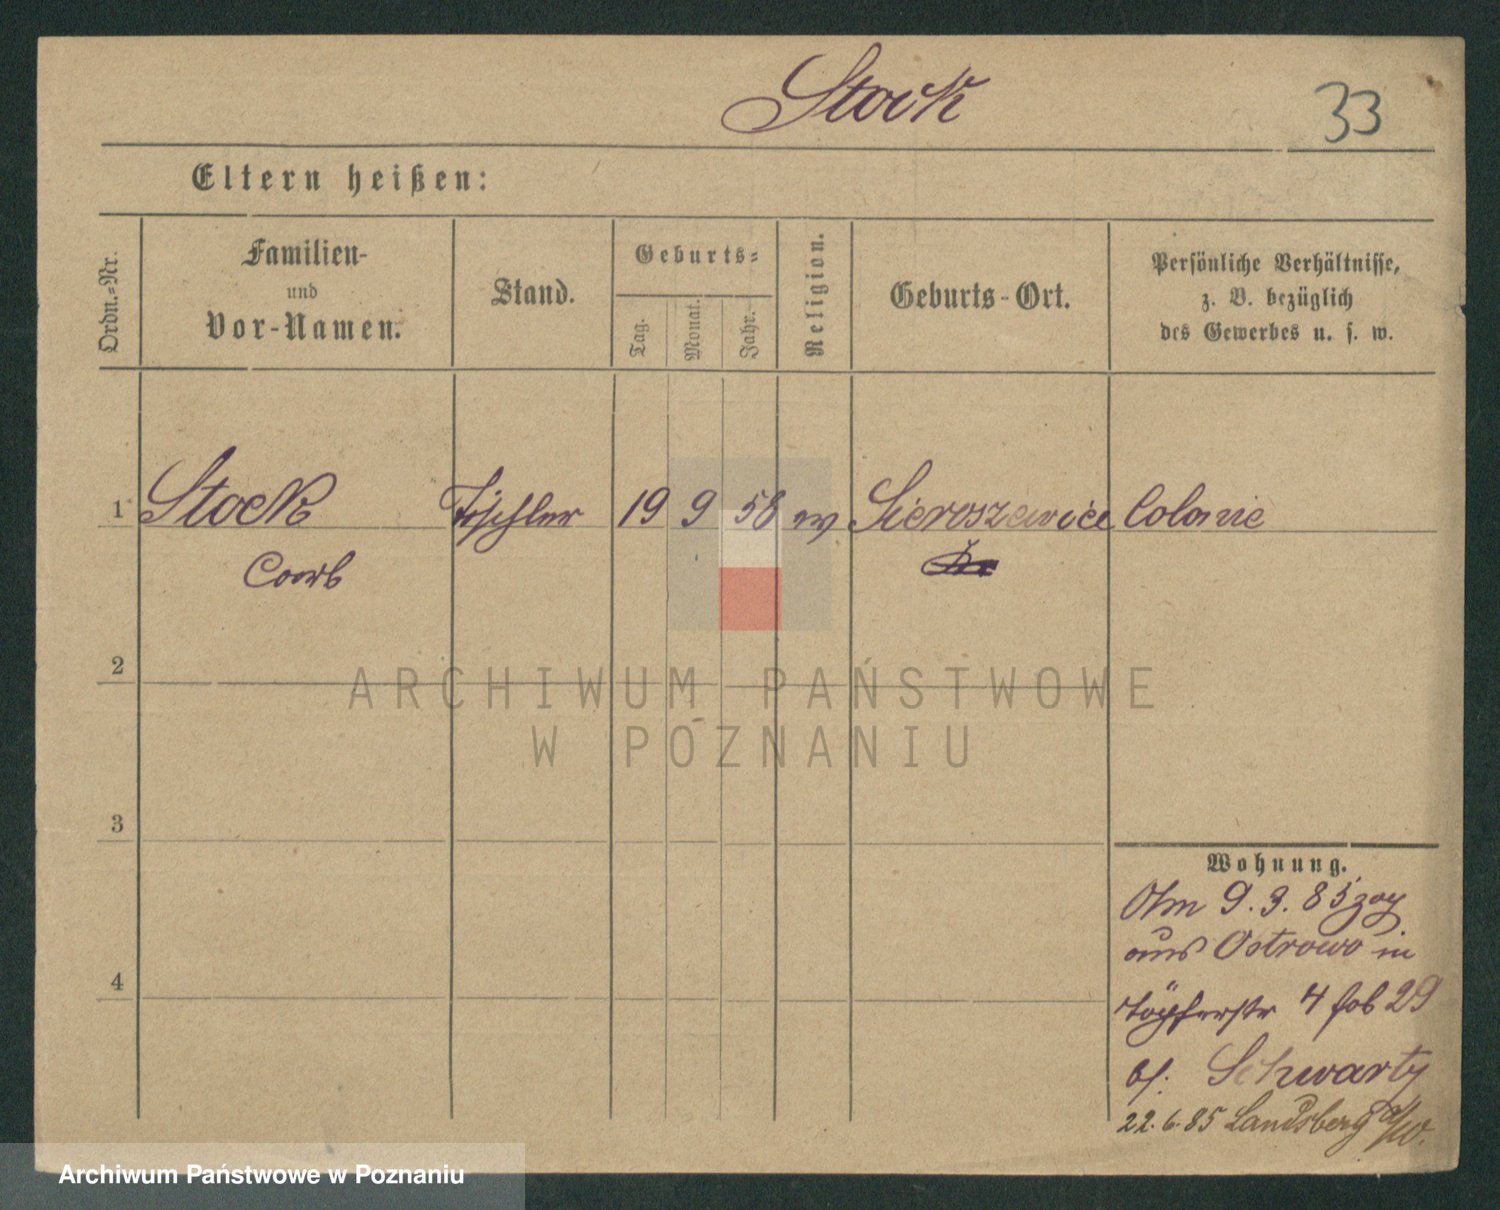 Stock
33
Eltern heißen:
Ordn.-Nr.
Familien-
und
Vor-Namen.
Stand.
Geburts-
Tag.
Monat.
Jahr.
Religion.
Geburts-Ort.
Persönliche Verhältnisse,
z. B. bezüglich
des Gewerbes u. s. w.
1 Stock Tischler 19 9 58 ev Sieroszewice Colonie
2
3
4
Wohnung.
9.3.85 zog
aus Ostrowo in
Töpferstr 4 29
bei Schwartz
22.6.85 Landsberg a/W.
ARCHIWUM PAŃSTWOWE
W POZNANIU
Archiwum Państwowe w Poznaniu